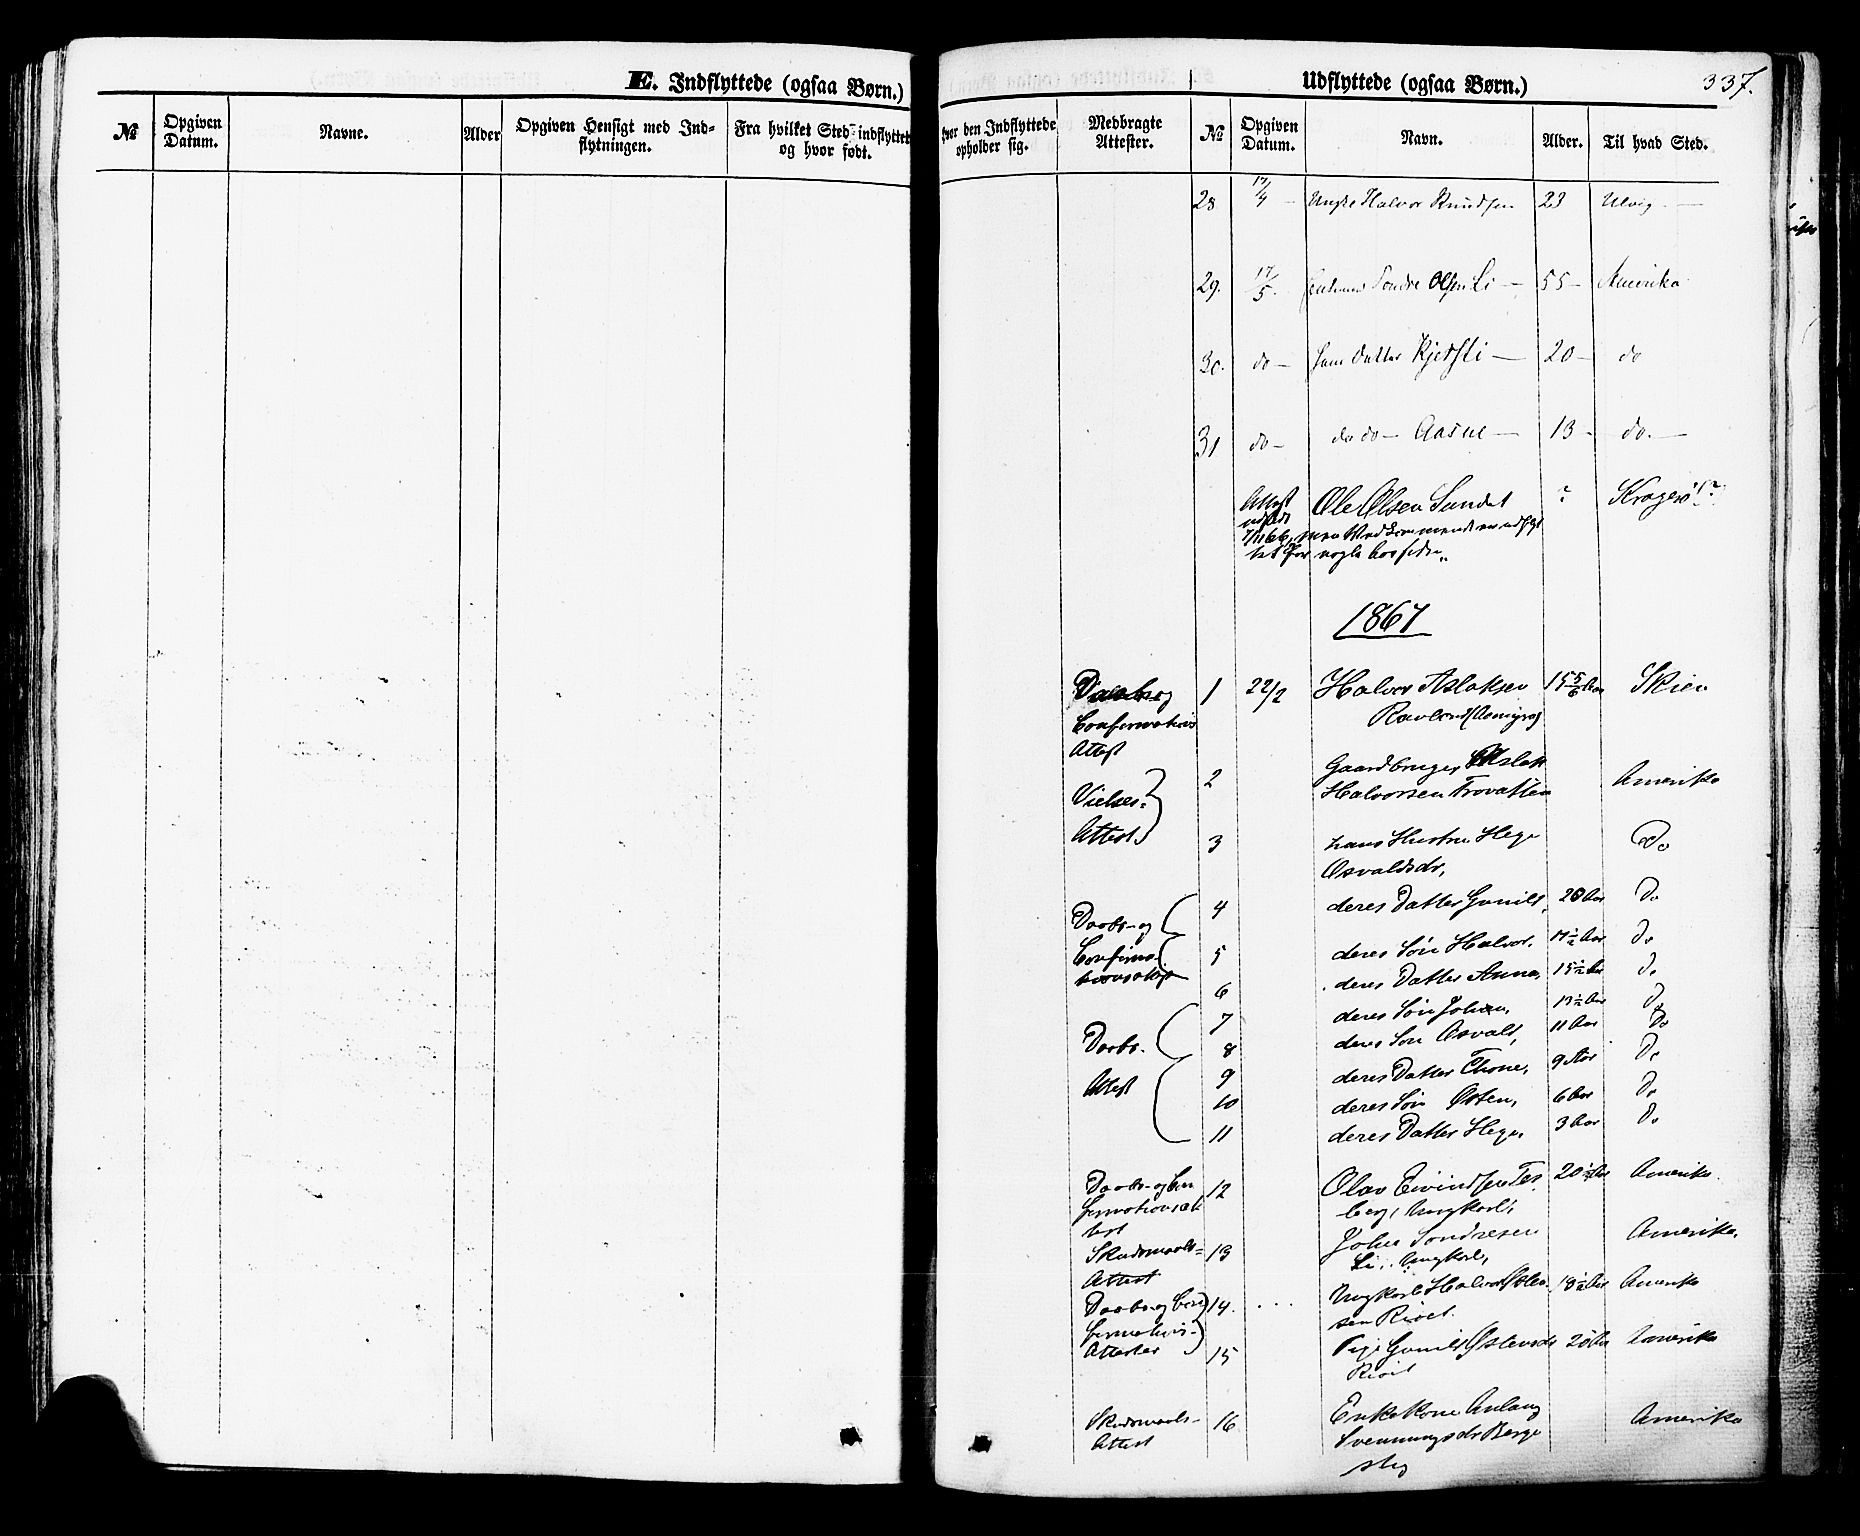 E. Indflyttede (ogsaa Børn.)
Udflyttede (ogsaa Børn.)
337.
№
Opgiven Datum.
Navne.
Alder
Opgiven Hensigt med Ind-
flytningen.
Fra hvilket Sted indflyttet
og hvor født.
hvor den Indflyttede
opholder sig.
Medbragte
Attester.
№
Opgiven
Datum.
Navn.
Alder.
Til hvad Sted.
28 17/4 Halvor Knudsen 23 Ulvig
29. 17/5. Sondre Olsen Li 55 Amerika
30. do hans Datter Li 20 do
31 do do do Aasne 13 do.
Attest Ole Olsen Sundet ? Kragerø ?
udstedt
7/11 66, men Vedkommende er udflyt
tet for nogle Aar siden
1867
Daabs og 1 22/2 Halvor Aslaksen 15 5/6 Aar Skien
Confirmations
Attest
2 Gaardbruger Aslak
Halvorsen Trovatten Amerika
Vielses-
Attest. 3 hans Hustru Hege Do
Osvaldsdr,
Daabs- og 4 deres Datter Gunild, 20 Aar Do
Confirma- 5 deres Søn Halvor. 17 1/2 Aar Do
tionsattest 6 deres Datter Anne, 15 1/2 Aar Do
7 deres Søn Johan, 13 1/2 Aar Do
Daabs- 8 deres Søn Osvald, 11 Aar Do
Attest 9 deres Datter Thone, 9 Aar Do
10 deres Søn Østen, 6 Aar Do
11 deres Datter Hege. 3 Aar Do
Daabs- og Con 12 Olav Eivindsen Tes 20 1/2 Aar Amerika.
firmationsat berg, Ungkarl,
test
Skudsmaals- 13 John Sondresen Amerika.
Attest Li, Ungkarl,
Daabs- og Con 14. Ungkarl Halvor Østen 18 1/2 Aar Amerika
firmations- sen
Attester 15 Pige Gunild Østensdr 20 Aar Amerika
Skudsmaals- 16 Enkekone Anlaug Amerika
Attest Svennungsdr Berge